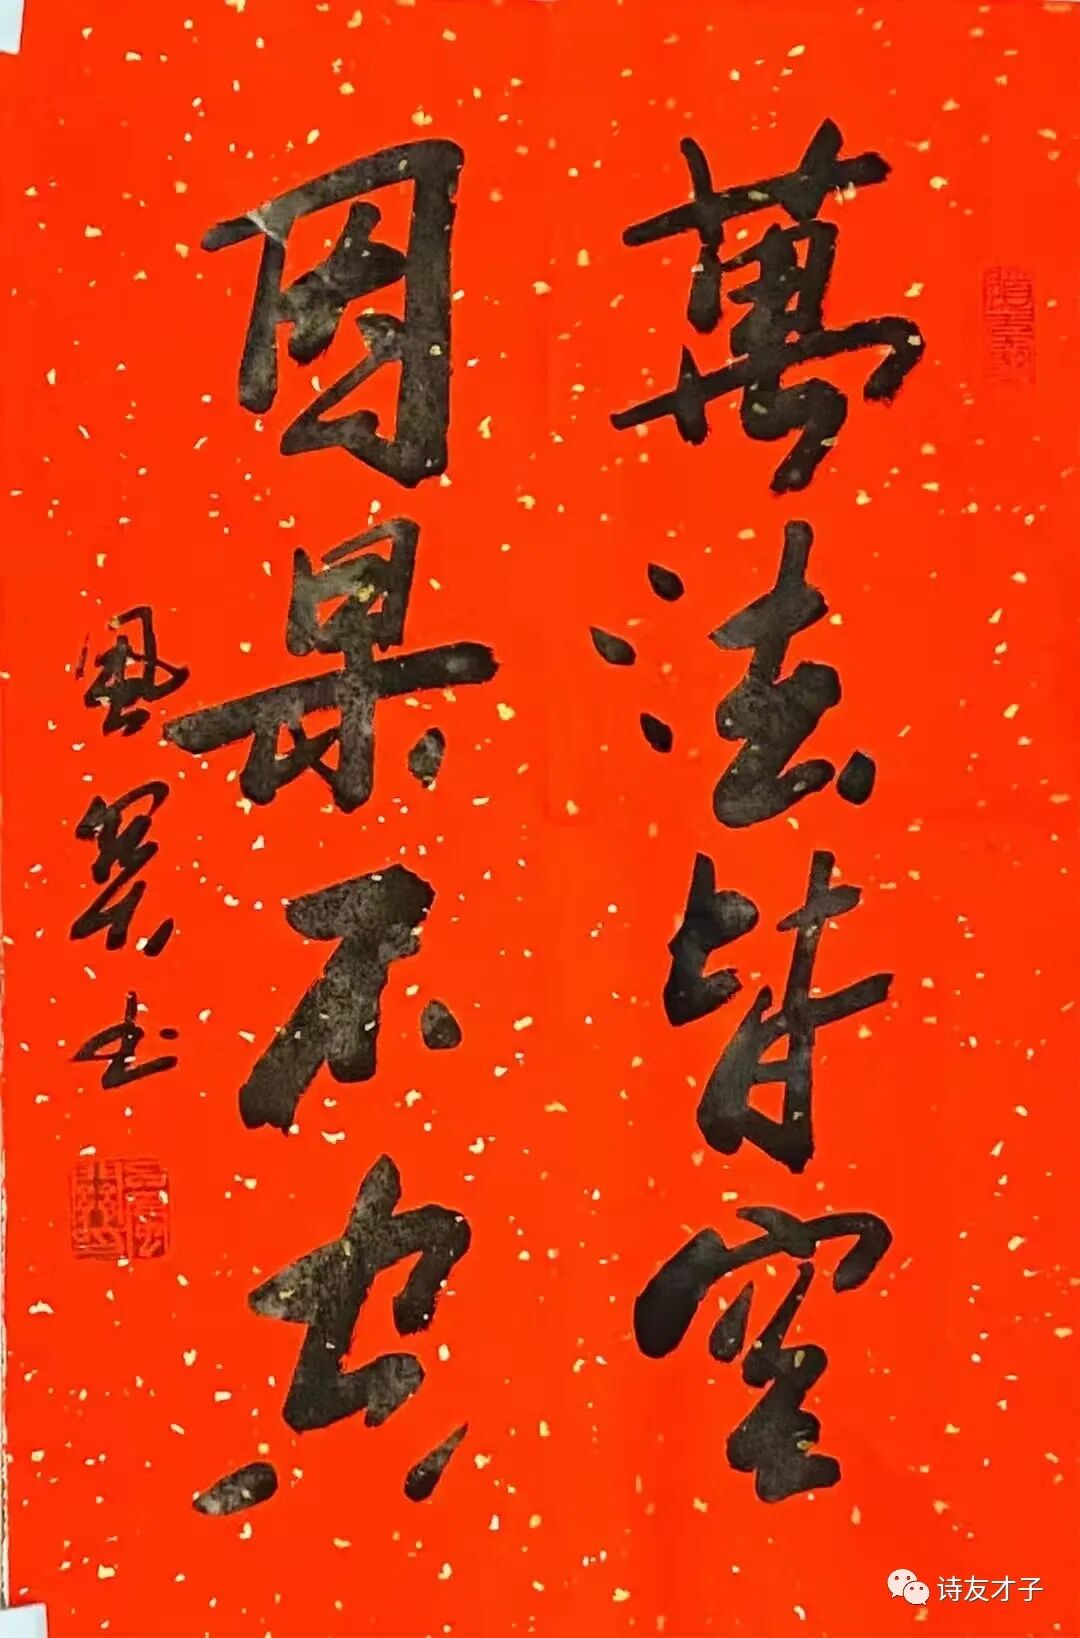 萬法皆空
因果不空
風 书
诗友才子